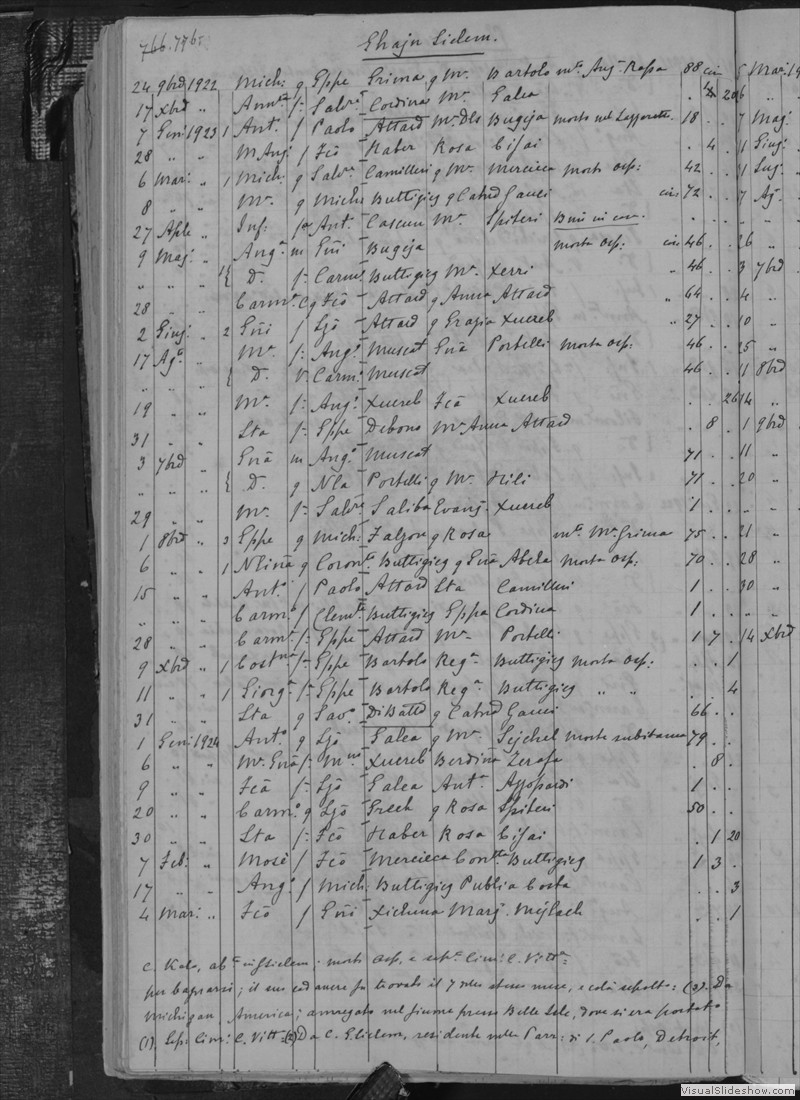 766.7765
Ghajn Sielem.
24 9brd 1922 Mich: q Gppe Grima q Mr. Bartolo mto Ang: Rapa 88 cin 5 Mar: 19
17 Xbrd " Annta f- Salvr Cordina Mr. Galea . 4 20 6 "
7 Gen: 1923 1 Ant. f Paolo Attard Mr. Dls Bugeja morto nel Lazzaretto 18 . . 7 Maj
28 " " M Ang: f Fcõ Haber Rosa Cifai . 4 . 11 Giug:
6 Mar: " 1 Mich: q Salvr Camilleri q Mr. Mercieca morto osp: 42 . . 1 Lug:
8 " Mr. q Mich: Buttigieg q Catrd Gauci cin 72 . . 7 Ag:
27 Aple " Inf: Ant. Cascun Mr. Spiteri . . . "
9 Maj " Anga m Gñi Bugeja morta osp: cin 46 . . 26 "
" " " 1 { D. f- Carm: Buttigieg Mr. Xerri " 46 . . 3 7brd
28 " " Carm: q Fcõ Attard q Anna Attard " 64 . . 4 "
2 Giug: " 2 Gñi f Ljõ Attard q Grazia Xuereb " 27 . . 10 "
17 Ago " Mr. f- Ango Muscat Gnã Portelli morta osp: 46 . . 25 "
" " " { D. V Carm: Muscat 46 . . 11 8brd
19 " " Mr. f- Ango Xuereb Fcã Xuereb . . 26 14 "
31 " " Sta f- Gppe Debono Mr. Anna Attard . 8 . 1 9brd
3 7brd " Gnã m Ango Muscat 71 . . 11 "
" " " { D. q Nla Portelli q Mr. Hili 71 . . 20 "
29 " " Mr. f- Salvr Saliba Evang: Xuereb 1 . . " "
1 8brd " 3 Gppe q Mich: Falzon q Rosa mto Mr. Grima 75 . . 21 "
6 " " 1 Nlinã q Coronto Buttigieg q Gnã Abela morta osp: 70 . . 28 "
15 " " Anto f Paolo Attard Sta Camilleri 1 . . 30 "
" " " Carmo f Clemte Buttigieg Gppa Cordina 1 . . " "
28 " " Carmo f- Gppe Attard Mr. Portelli 1 7 . 14 Xbrd
9 Xbrd " 1 Costna f- Gppe Bartolo Rega Buttigieg morta osp: . . 1
11 " " 1 Giorga f- Gppe Bartolo Rega Buttigieg " " . . 4
31 " " Sta q Savo DiBattd q Catrd Gauci 66 . .
1 Gen: 1924 Anto q Ljõ Galea q Mr. Sejchel morte subitanea 79 . .
6 " " Mr. Gnã f- Xuereb Berdina Zerafa . 8 .
9 " " Fcã f- Ljõ Galea Anta Azzopardi 1 . .
20 " " Carmo q Ljõ Grech q Rosa Spiteri 50 . .
30 " " Sta f- Fcõ Haber Rosa Cifai . 1 20
7 Feb: " Mosè f Fcõ Mercieca Contta Buttigieg 1 3 .
17 " " Ango f Mich: Buttigieg Publia Costa . . 3
4 Mar: " Fcõ f Gñi Xicluna Marj: Mejlach . . 1
C. Kala, morto osp, e Cim: C. Vitta:
per ; il suo cadavere fu trovato il 7 mese, e colà sepolto: (3). Da
Michigan America; annegato nel fiume presso Belle Isle, dove si era portato
(1). Sep: Cim: C. Vitt: (2) Da C. Glielem, residente nella Parr: di S. Paolo, Detroit,
VisualSlideshow.com